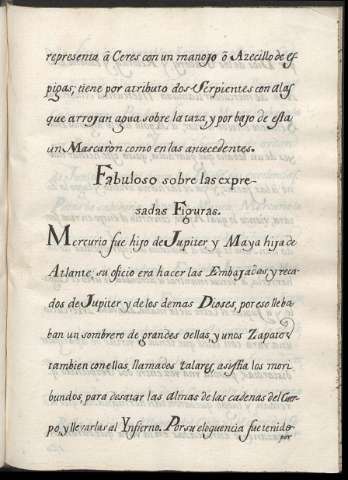 representa â Ceres con un manojo ô Azecillo de es-
pigas; tiene por atributo dos Serpientes con alas
que arrojan agua sobre la taza, y por bajo de esta
un Mascaron como en las antecedentes.
Fabuloso sobre las expre-
sadas Figuras.
Mercurio fue hijo de Jupiter y Maya hija de
Atlante; su oficio era hacer las Embajadas, y reca-
dos de Jupiter y de los demas Dioses, por eso lleba-
ban un sombrero de grandes
tambien con ellas, llamados talares, asistia los mori-
bundos, para desatar las almas de las cadenas del Cuer-
po, y llevarlas al Ynfierno. Por su eloquencia fue tenido
por